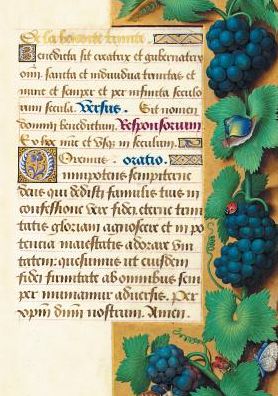 De la benoite trinite.
Benedicta sit creatrix et gubernatrix
omn. sancta et individua trinitas et
nunc et semper et per infinita seculo
rum secula. Versus. Sit nomen
domini benedictum. Responsorium
Ex hoc nūc et vsq; in seculum.
Oremus. oratio.
Omnipotens sempiterne
deus qui dedisti famulis tuis in
confessione vere fidei eterne trini
tatis gloriam agnoscere et in po
tencia maiestatis adorare vni
tatem: quesumus ut eiusdem
fidei firmitate ab omnibus sem
per muniamur aduersis. Per
xp̄m dn̄m nostrum. Amen.